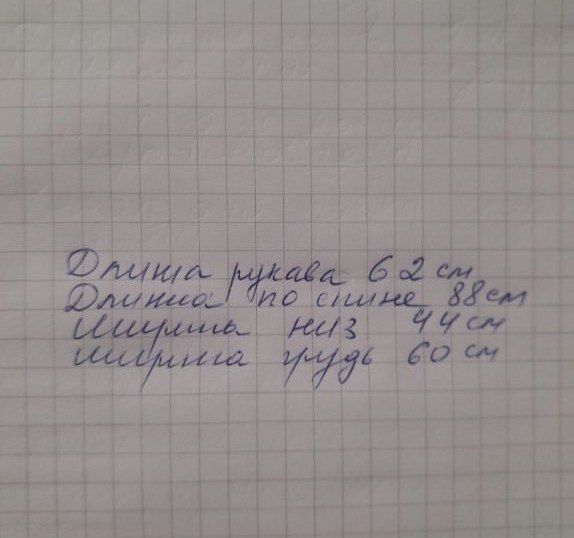 Длина рукава 62 см
Длинна по спине 88 см
Ширина низ 44 см
Ширина грудь 60 см